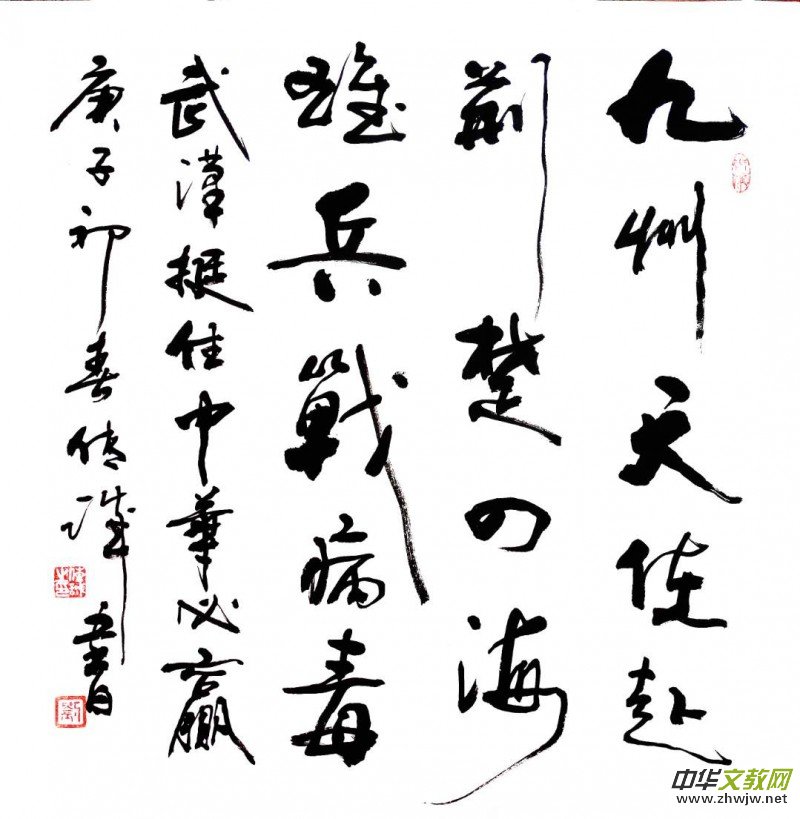 九州天使赴
荆楚四海
雄兵戰病毒
武漢挺住中華必贏
庚子初春傳
書
中华文教网
www.zhwjw.net